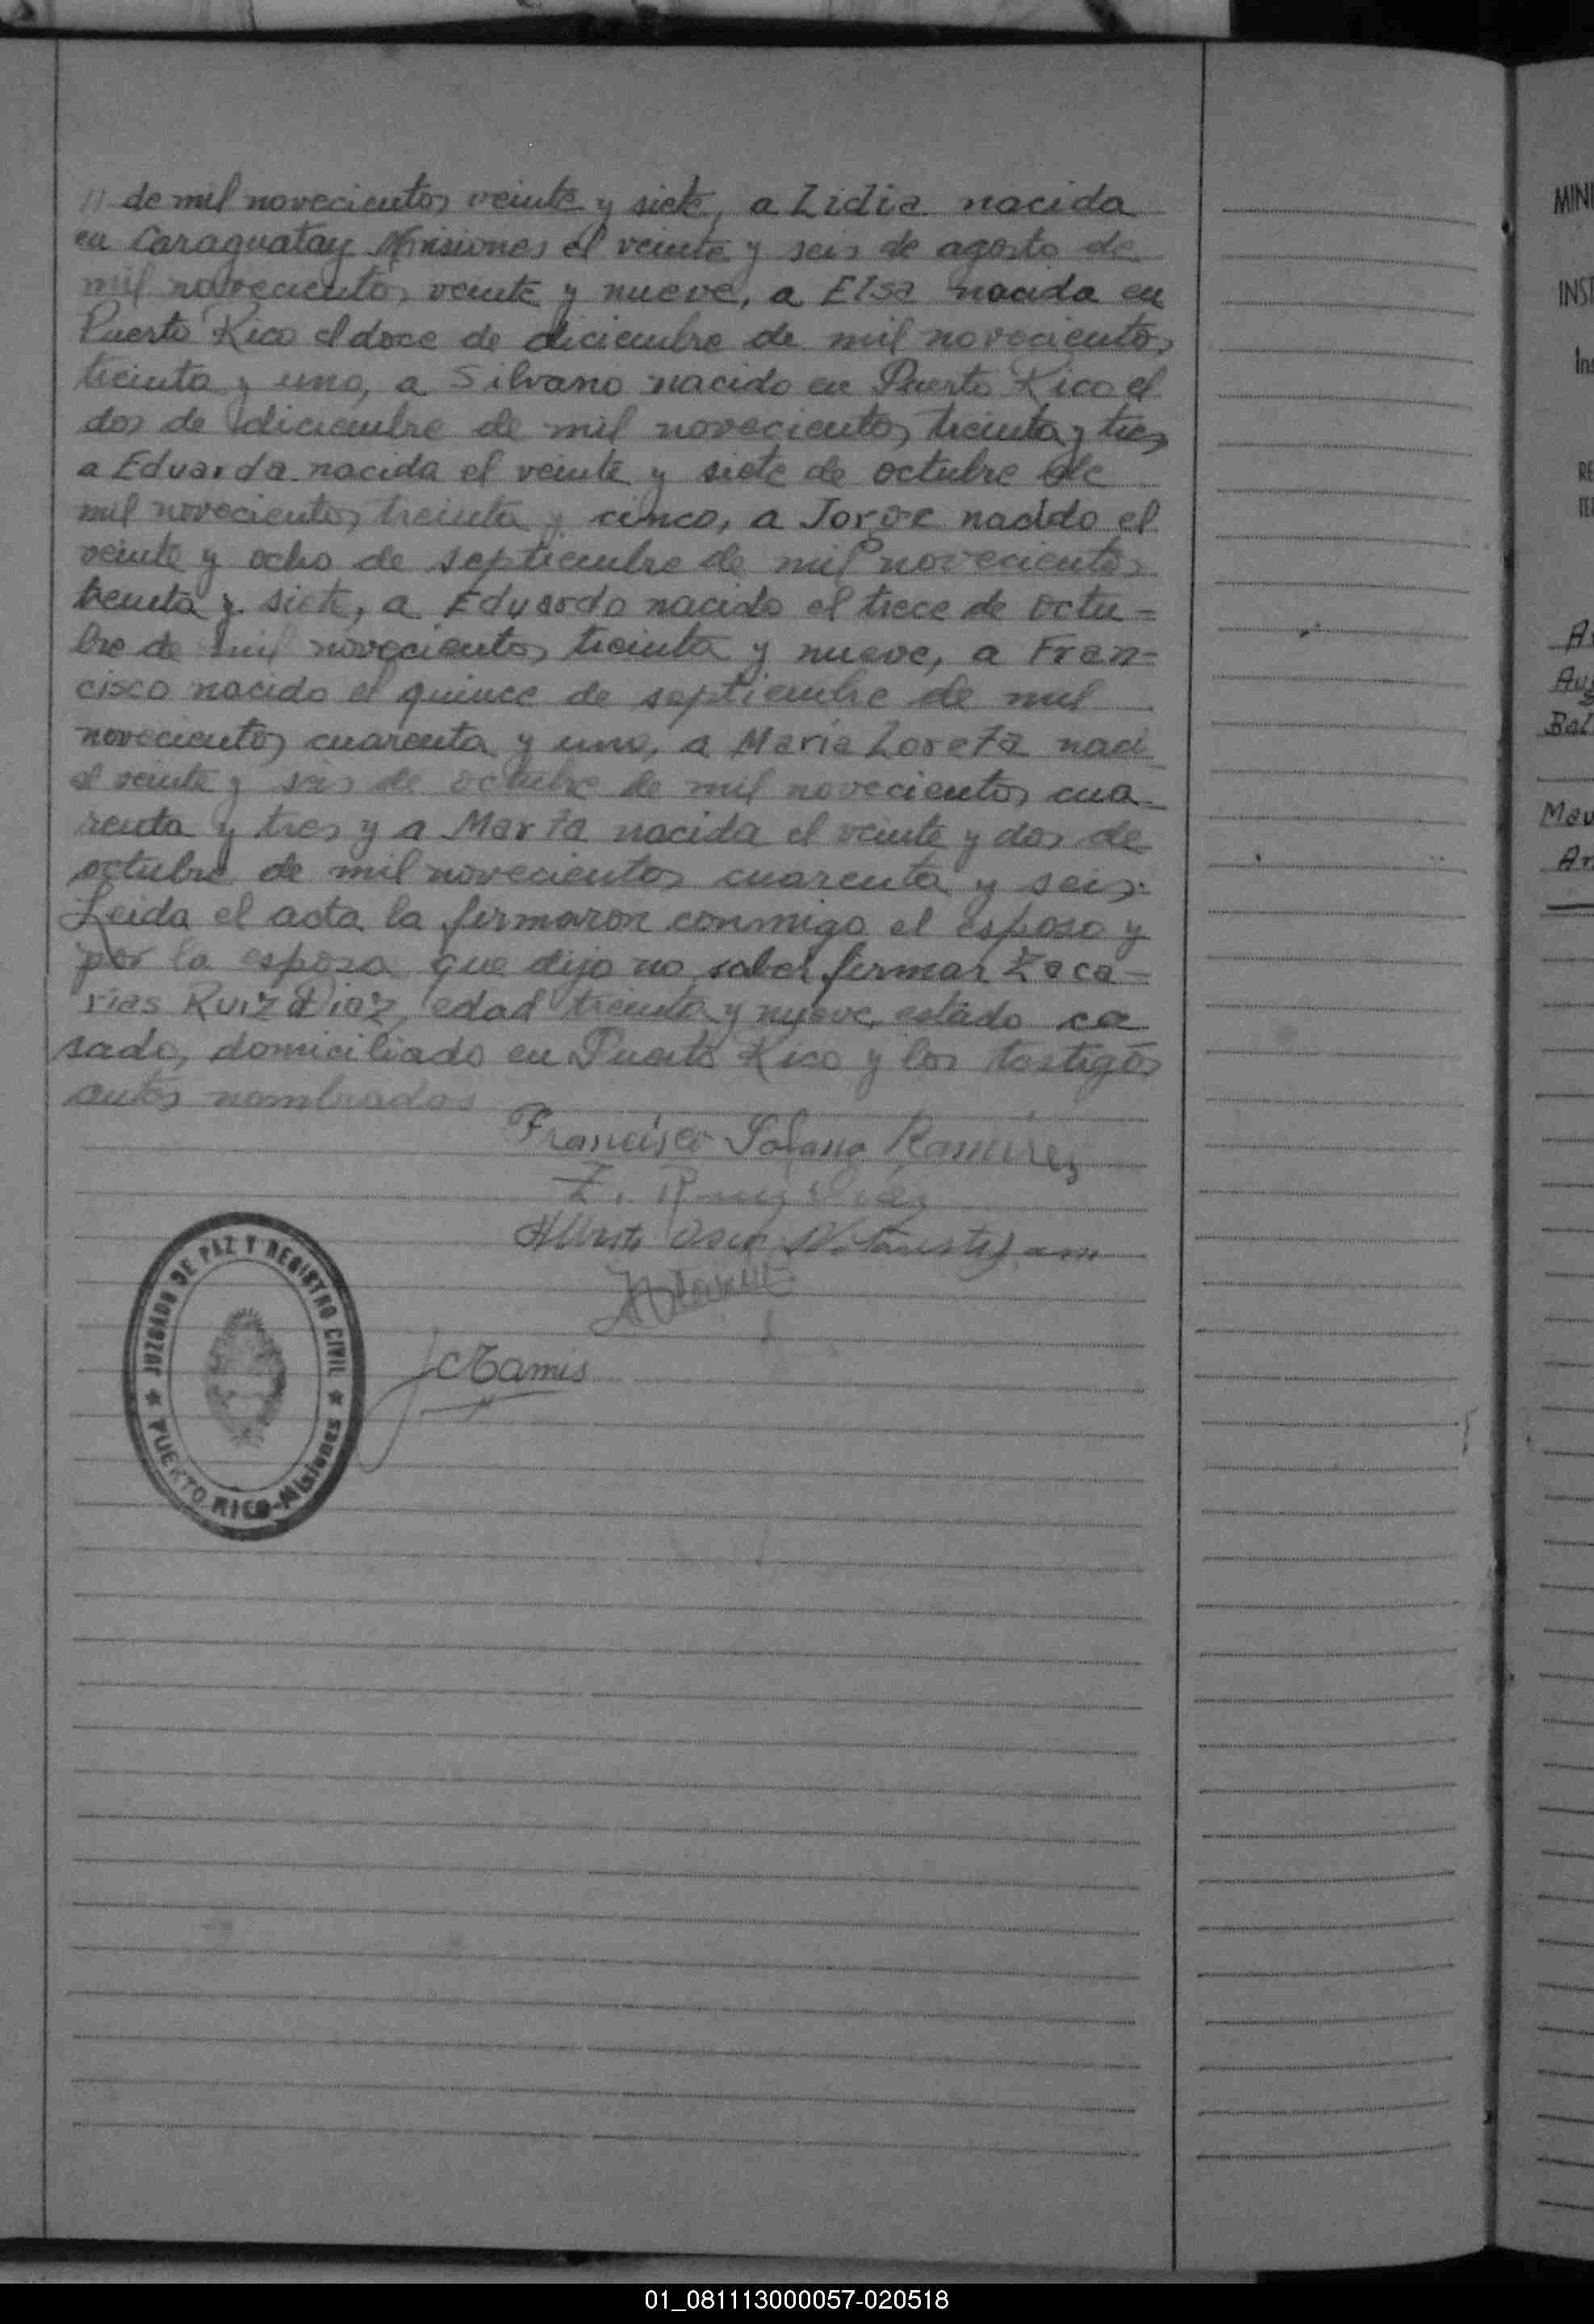 11 de mil novecientos veinte y siete, a Lidia nacida
en Caraguatay Misiones el veinte y seis de agosto de
mil novecientos veinte y nueve, a Elsa nacida en
Puerto Rico el doce de diciembre de mil novecientos
treinta y uno, a Silvano nacido en Puerto Rico el
dos de diciembre de mil novecientos treinta y tres
a Eduarda nacida el veinte y siete de octubre de
mil novecientos treinta y cinco, a Jorge nacido el
veinte y ocho de septiembre de mil novecientos
treinta y siete, a Eduardo nacido el trece de octu=
bre de mil novecientos treinta y nueve, a Fran=
cisco nacido el quince de septiembre de mil
novecientos cuarenta y uno, a María Loreta naci
el veinte y seis de octubre de mil novecientos cua-
renta y tres y a Marta nacida el veinte y dos de
octubre de mil novecientos cuarenta y seis.
Leida el acta la firmaron conmigo el esposo y
por la esposa que dijo no saber firmar Zaca=
rias Ruiz Diaz, edad treinta y nueve, estado ca
sado, domiciliado en Puerto Rico y los testigos
antes nombrados
Francisco Solano Ramirez
Z. Ruiz Diaz
JUZGADO DE PAZ Y REGISTRO CIVIL
PUERTO RICO-Misiones
MINI
INST
Ins
RE
TE
A
Au
Bal
Mau
An
01_081113000057-020518